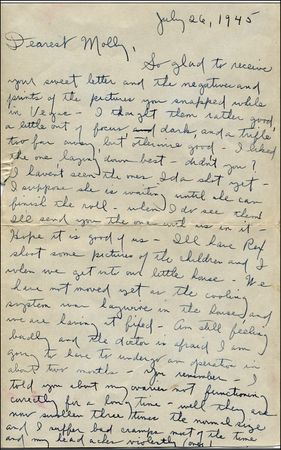 July 26, 1945
Dearest Molly,
So glad to receive
your sweet letter and the negatives and
prints of the pictures you snapped while
in Vegas - I thought them rather good
a little out of focus and dark and a trifle
too far away, but otherwise good - I liked
the one laying down best - didn't you?
I haven't seen the ones Ida shot yet -
I suppose she is waiting until she can
finish the roll - when I do see them
I'll send you the one with us in it -
Hope it is good of us - I'll have Rex
shoot some pictures of the children and I
when we get into our little house. We
have not moved yet as the cooling
system was haywire in the house and
we are having it fixed - Am still feeling
badly and the doctor is afraid I am
going to have to undergo an operation in
about two months - You remember - I
told you about my ovaries not functioning
correctly for a long time - well they are
now swollen three times the normal size
and I suffer bad cramps most of the time
and my head aches violently